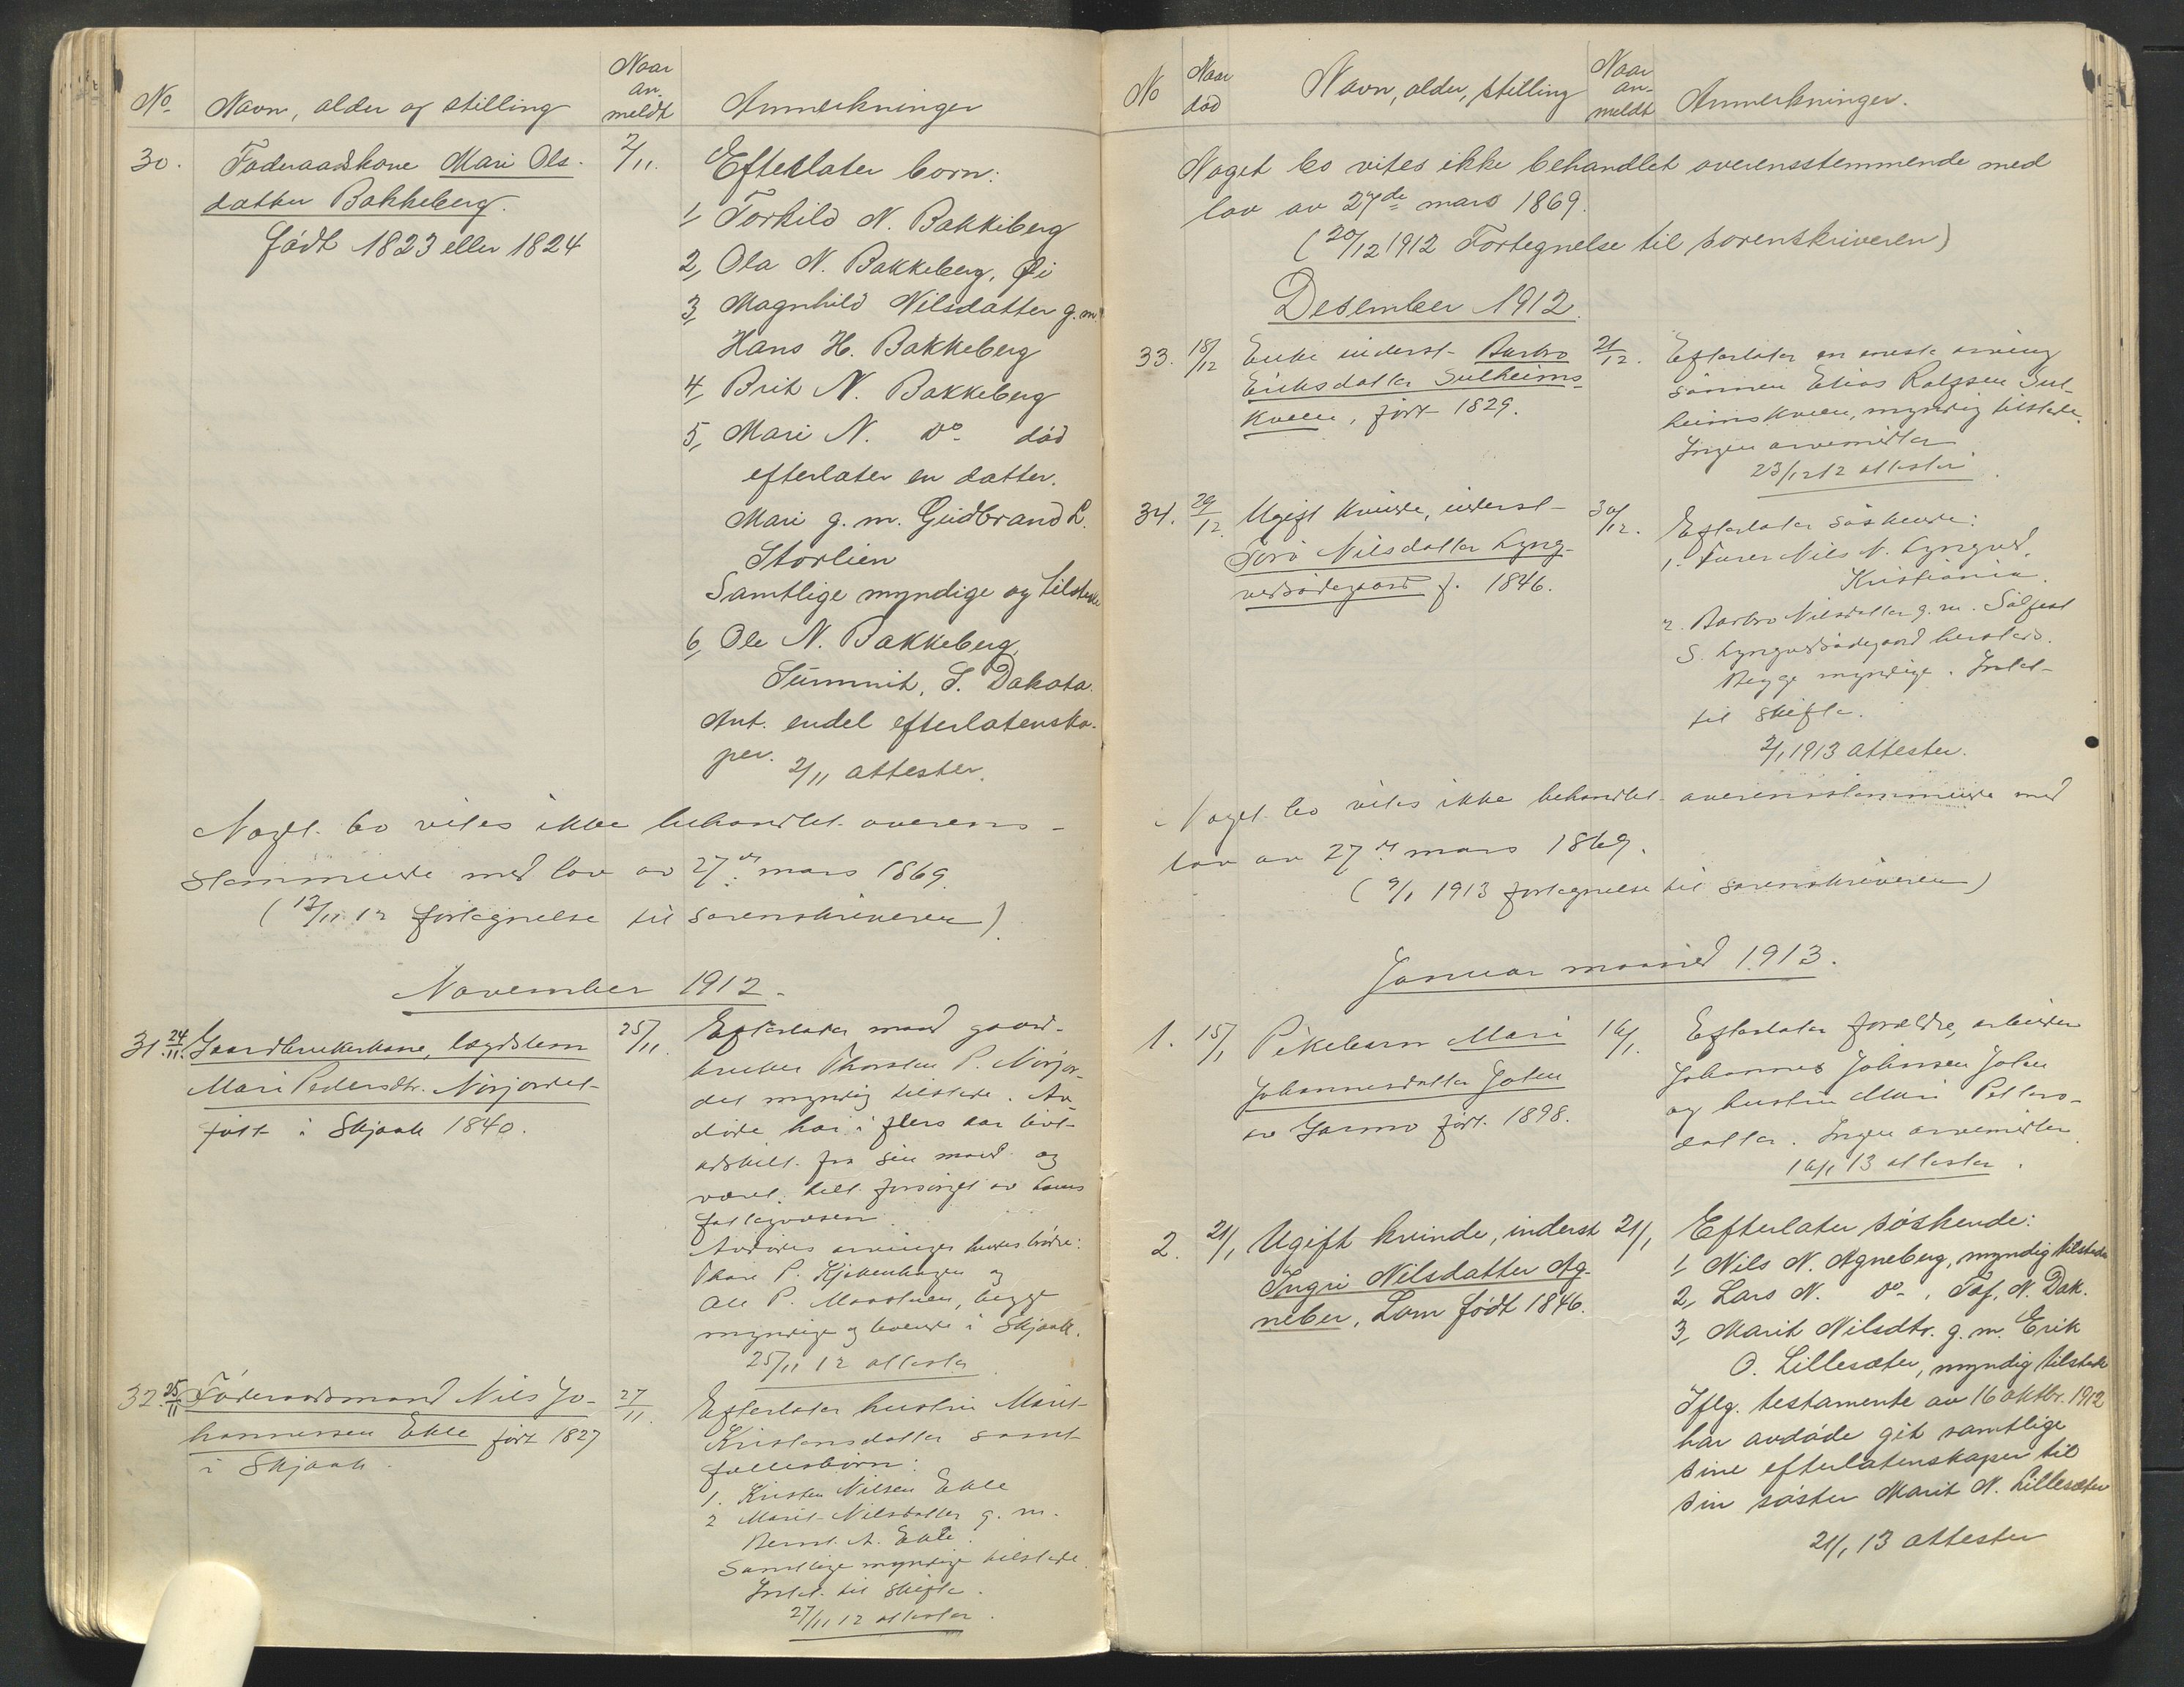 No Navn, alder og stilling Naar an- meldt Anmerkninger
30. Føderaadskone Mari Ols- 2/11. Efterlater born:
datter Bakkeberg.
født 1823 eller 1824
1, Torkild N. Bakkeberg
2, Ola N. Bakkeberg, Øi
3, Magnhild Nilsdatter g.m.
Hans H. Bakkeberg
4, Brit N. Bakkeberg
5, Mari N. Do død
efterlater en datter.
Mari g. m. Gudbrand L.
Storlien
Samtlige myndige og tilstede
6, Ole N. Bakkeberg,
Summit, S. Dakota.
Ant. endel efterlatenska-
per. 2/11 attester.
Noget bo vites ikke behandlet overens-
stemmende med lov av 27de mars 1869.
(12/11 12 fortegnelse til sorenskriveren)
November 1912.
31. 24/11. Gaardbrukerkone, lægdslem 25/11. Efterlater mand gaard-
Mari Pedersdtr. Nørjordet
født i Skjaak 1840.
bruker Thorsten P. Nørjor-
det myndig tilstede. Av-
døde har i flere aar levet
adskilt fra sin mand og
været helt forsørget av Loms
fattigvæsen.
Avdødes arvinger hendes brødre:
Thore P. Kjøkenhagen og
Ole P. Mostuen, begge
myndige og boende i Skjaak.
25/11 12 attester
32. 25/11 Føderaadsmand Nils Jo- 27/11. Efterlater hustru Marit
hannessen Ekle født 1827
i Skjaak.
Kristensdatter samt
fællesbørn:
1. Kristen Nilsen Ekle
2 Marit Nilsdatter g. m.
Bernt A. Ekle.
Samtlige myndige tilstede.
Intet til skifte.
27/11 12 attester.
No Naar død Navn, alder, stilling Naar an- meldt Anmerkninger.
Noget bo vites ikke behandlet overensstemmende med
lov av 27de mars 1869.
(20/12 1912 Fortegnelse til sorenskriveren)
Desember 1912.
33. 18/12 Enke inderst Barbro 21/12. Efterlater en eneste arving
Eriksdatter Sulheims-
kveen, født 1829.
sønnen Elias Sul-
heimskveen, myndig tilstede.
Ingen arvemidler
23/12 12 attester.
34. 29/12. Ugift kvinde, inderst 30/12. Efterlater søskende:
Tora Nilsdatter Lyng-
vedsødegaard f. 1846.
1. Nils N. Lyngved,
Kristiania.
2. Barbro Nilsdatter g. m. Sølfest
S. Lyngvedsødegaard hersteds.
Begge myndige. Intet
til skifte.
2/1 1913 attester.
Noget bo vites ikke behandlet overensstemmende med
lov av 27de mars 1869.
(9/1 1913 fortegnelse til sorenskriveren)
Januar maaned 1913.
1. 15/1 Pikebarn Mari 16/1. Efterlater forældre, arbeider
Johannesdatter Jolen
av Garmo født 1898.
Johannes Johnsen Jolen
og hustru Mari Petters-
datter. Ingen arvemidler.
16/1 13 attester.
2. 21/1 Ugift kvinde, inderst 21/1 Efterlater søskende:
Ingri Nilsdatter Ag-
neber, Lom født 1846.
1, Nils N. Agneberg, myndig tilstede
2, Lars N. Do, Taf. N. Dak.
3, Marit Nilsdtr. g. m. Erik
O. Lillesæter, myndig tilstede
Iflg. testamente av 16 oktbr. 1912
har avdøde git samtlige
sine efterlatenskaper til
sin søster Marit N. Lillesæter
21/1 13 attester